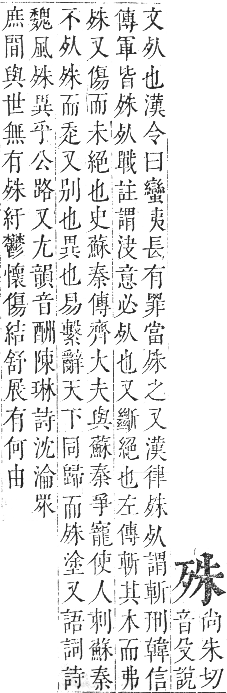 殊尚朱切
音殳說
文死也漢令曰蠻夷長有罪當殊之又漢律殊死謂斬刑韓信
傳軍皆殊死戰註謂決意必死也又斷絕也左傳斬其木而弗
殊又傷而未絕也史蘇秦傳齊大夫與蘇秦爭寵使人刺蘇秦
不死殊而走又別也異也易繫辭天下同歸而殊塗又語詞詩
魏風殊異乎公路又尤韻音酬陳琳詩沈淪眾
庶間與世無有殊紆鬱懷傷結舒展有何由